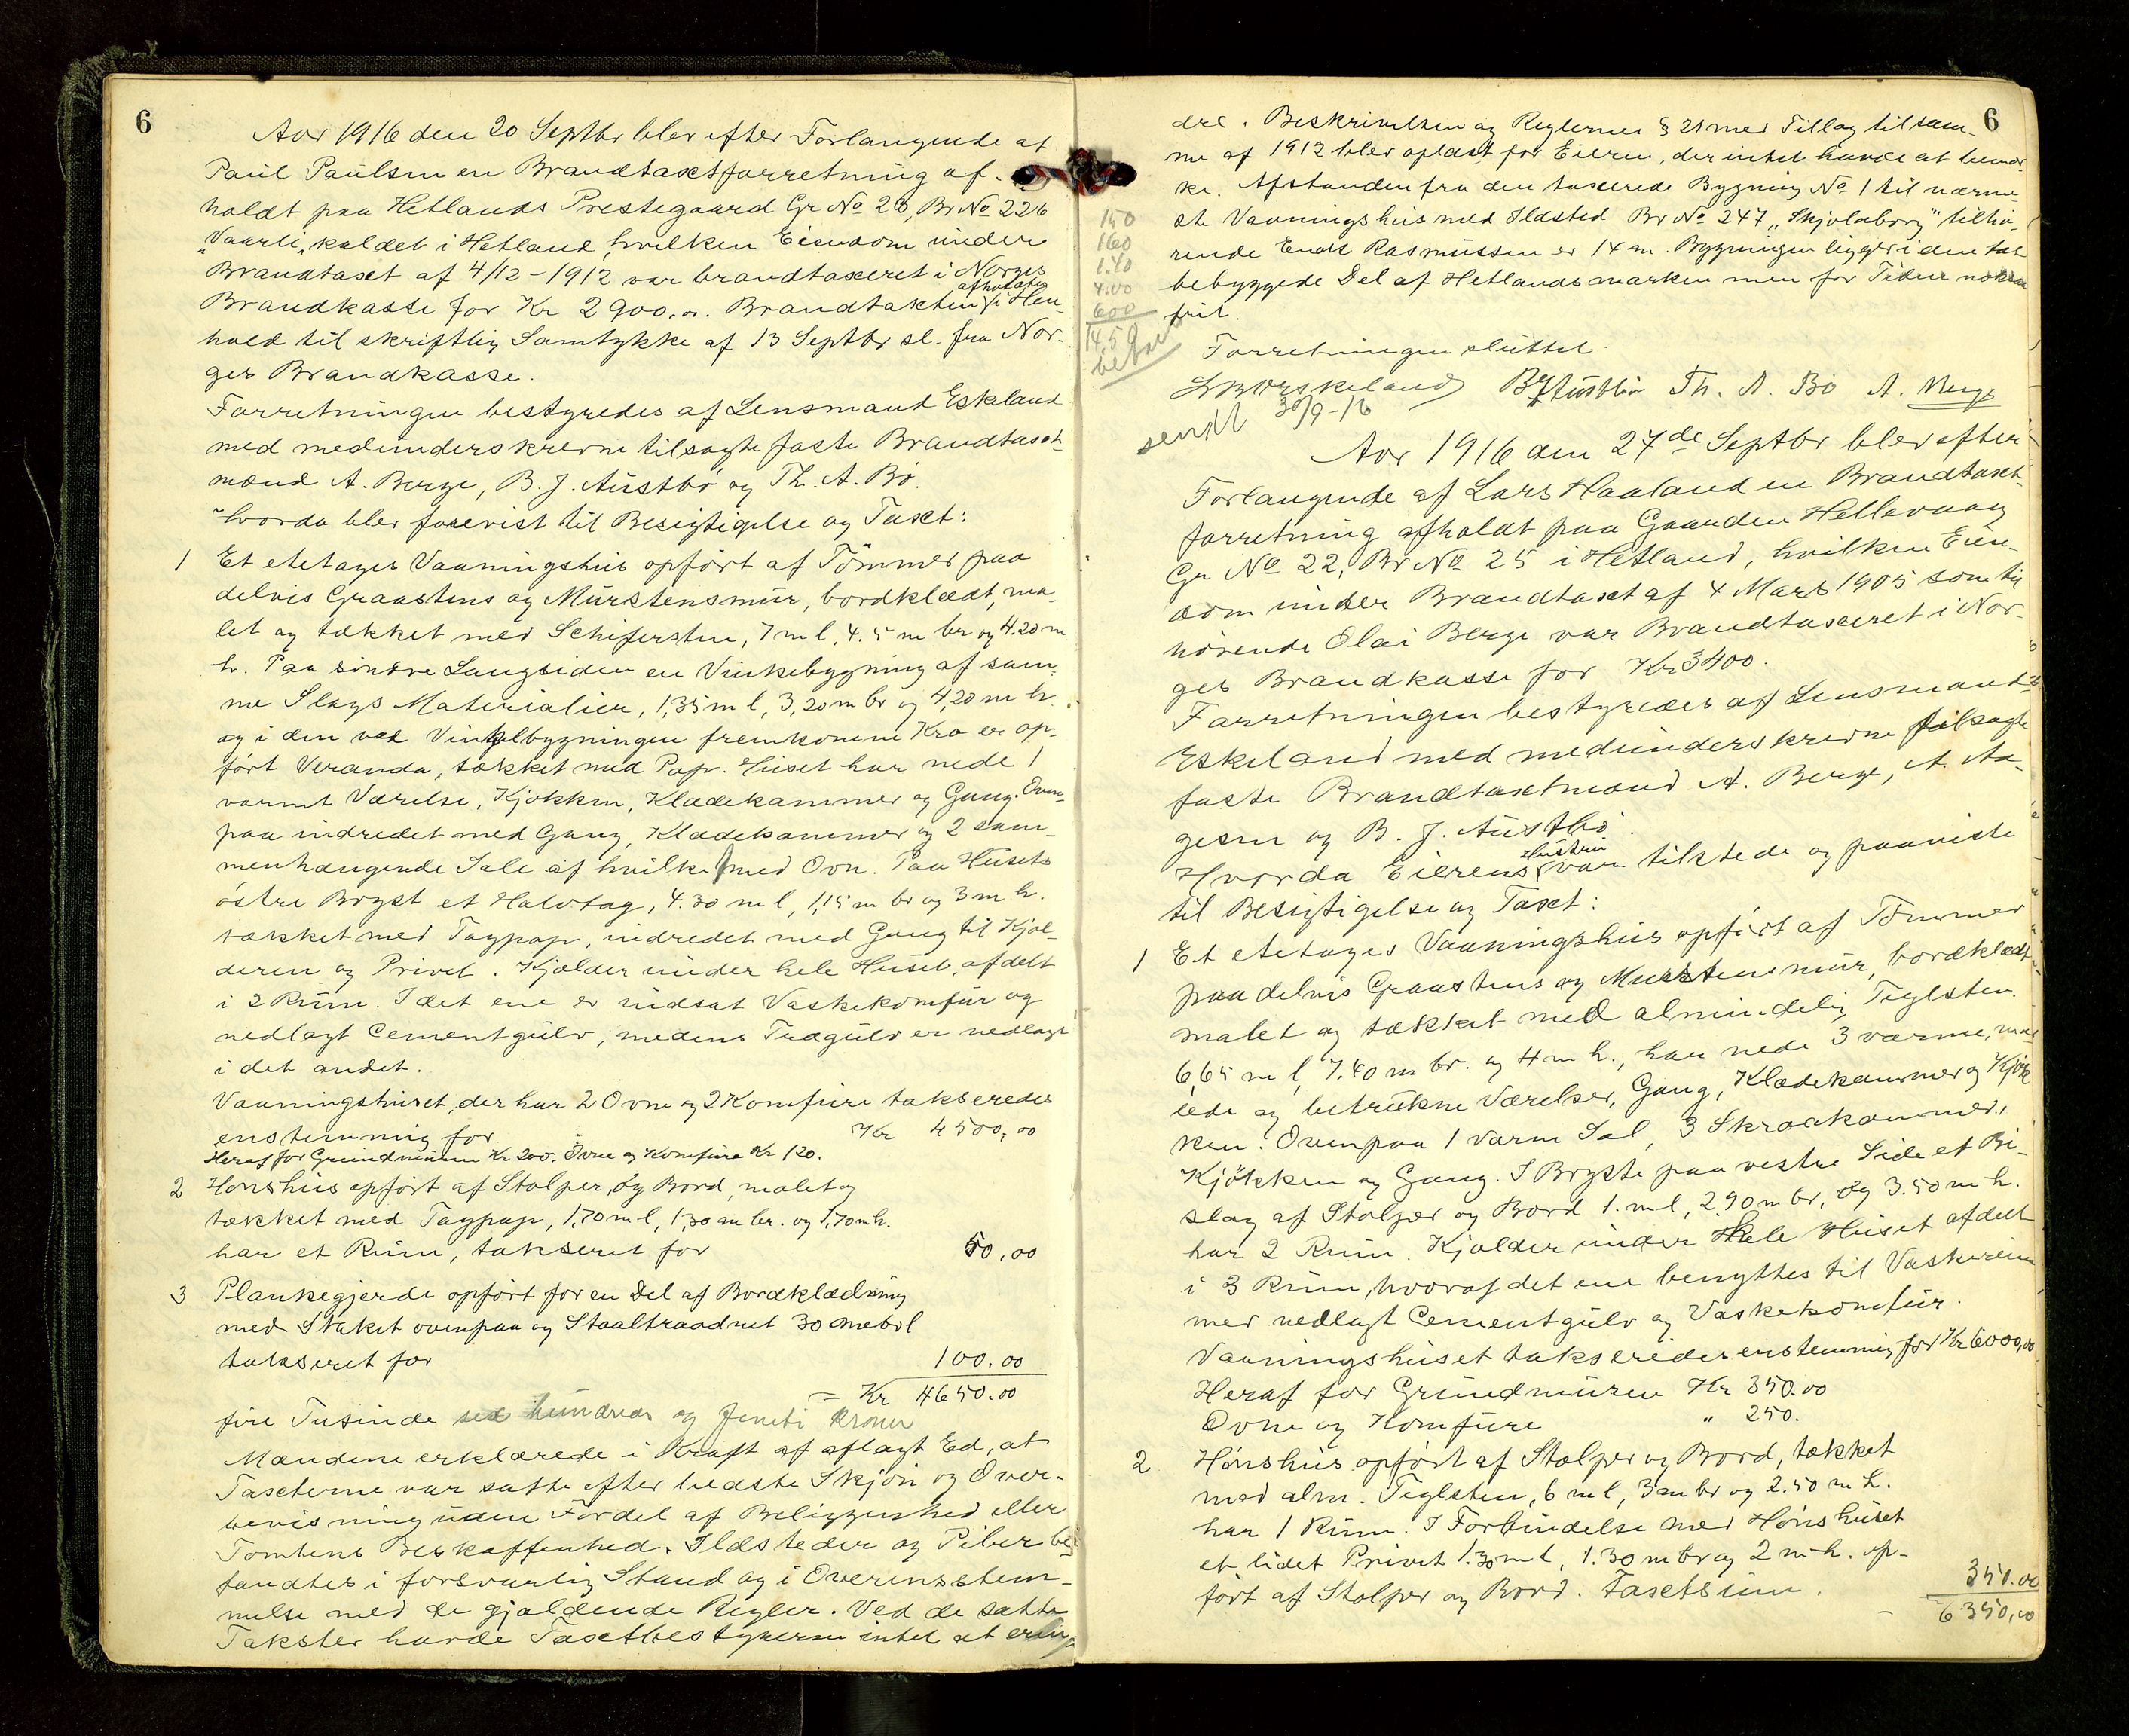 6
Aar 1916 den 20 Septbr blev efter Forlangende af
Paul Paulsen en Brandtaxtforretning af-
holdt paa Hetlands Prestegaard Gr No 28, Br No 226
"Vaarli" kaldet i Hetland, hvilken Eiendom under
Brandtaxt af 4/12-1912 var brandtaxeret i Norges
Brandkasse for Kr 2900,00. Brandtakten afholdtes i Hen-
hold til skriftlig Samtykke af 13 Septbr sl. fra Nor-
ges Brandkasse.
Forretningen bestyredes af Lensmand Eskeland
med medunderskrevne tilsagte faste Brandtaxt-
mænd A. Berge, B. J. Austbø og Th. A. Bø.
Hvorda blev forevist til Besigtigelse og Taxt:
1 Et etetages Vaaningshus opført af Tømmer paa
delvis Graastens og Murstensmur, bordklædt, ma-
let og tækket med Schifersten, 7 m l, 4.5 m br og 4.20 m
h. Paa søndre Langsiden en Vinkebygning af sam-
me Slags Materialier, 1,35 m l, 3,20 m br og 4,20 m h.
og i den ved Vinkelbygningen fremkomne Kro er op-
ført Veranda, tækket med Pap. Huset har nede 1
varmt Værelse, Kjøkken, Klædekammer og Gang. Oven-
paa indredet med Gang, Klædekammer og 2 sam-
menhængende Sale af hvilke 1 med Ovn. Paa Husets
østre Bryst et Halvtag, 4.30 m l, 1,15 m br og 3 m h.
tækket med Tagpap, indredet med Gang til Kjæl-
deren og Privet. Kjælder under hele Huset, afdelt
i 2 Rum. I det ene er indsat Vaskekomfur og
nedlagt Cementgulv, medens Trægulv er nedlagt
i det andet.
Vaaningshuset, der har 2 Ovne og 2 Komfure takseredes
enstemmig for Kr 4500,00
Heraf for Grundmuren Kr 200. Ovne og Komfure Kr 120.
2 Hønshus opført af Stolper og Bord, malet og
tækket med Tagpap, 1,70 m l, 1,30 m br. og 1,70 m h.
har et Rum, takseret for 50,00
3 Plankegjerde opført for en Del af Bordklædning
med Staket ovenpaa og Staaltraadnet 30 m
takseret for 100.00
= Kr 4650.00
fire Tusinde sex hundrede og femti Kroner
Mændene erklærede i Kraft af aflagt Ed, at
Taxterne var satte efter bedste Skjøn og Over-
bevisning uden Fordel af Beliggenhed eller
Tomtens Beskaffenhed. Ildsteder og Piber be-
fandtes i forsvarlig Stand og i Overensstem-
melse med de gjældende Regler. Ved de satte
Takster havde Taxtbestyreren intet at erin-
6
dre. Beskrivelsen og Reglernes § 21 med Tillæg til sam-
me af 1912 blev oplæst for Eieren, der intet havde at bemær-
ke. Afstanden fra den taxerede Bygning No 1 til nærme-
ste Vaaningshus med Ildsted Br No 247 "Skjoldaborg" tilhø-
rende Endt Rasmussen er 14 m. Bygningen ligger i den tæt
bebyggede Del af Hetlandsmarken men for Tiden noksaa
frit.
150
160
1.40
4.00
600
14.50
betalt
Forretningen sluttet.
Eskeland B J Austbø Th. A. Bø A. Berge
sendt 30/9-16
Aar 1916 den 27de Septbr blev efter
Forlangende af Lars Haaland en Brandtaxt-
forretning afholdt paa Gaarden Hellevaag
Gr No 22, Br No 25 i Hetland, hvilken Eien-
dom under Brandtaxt af 4 Mars 1905 som til-
hørende Olai Berge var Brandtaxeret i Nor-
ges Brandkasse for Kr 3400.
Forretningen bestyredes af Lensmand
Eskeland med medunderskrevne tilsagte
faste Brandtaxtmænd A. Berge, A. Aa-
gesen og B. J. Austbø.
Hvorda Eierens Hustru var tilstede og paaviste
til Besigtigelse og Taxt:
1 Et etetages Vaaningshus opført af Tømmer
paa delvis Graastens og Murstensmur, bordklædt
malet og tækket med almindelig Teglsten.
6,65 m l, 7,40 m br. og 4 m h., har nede 3 varme, ma-
lede og betrukne Værelser, Gang, Klædekammer og Kjøk-
ken. Ovenpaa 1 varm Sal, 3 Skraakammer,
Kjøkken og Gang. I Bryste paa vestre Side et Bi-
slag af Stolper og Bord 1. m l, 2,90 m br, og 3.50 m h.
har 2 Rum. Kjælder under Hele Huset afdelt
i 3 Rum, hvoraf det ene benyttes til Vaskerum
med nedlagt Cementgulv og Vaskekomfur.
Vaaningshuset takseredes enstemmig for Kr 6000,00
Heraf for Grundmuren Kr 350.00
Ovne og Komfure " 250.
2 Hønshus opført af Stolper og Bord, tækket
med alm. Teglsten, 6 m l, 3 m br og 2.50 m h.
har 1 Rum. I Forbindelse med Hønshuset
et lidet Privet 1.30 m l, 1.30 m br og 2 m h. op-
ført af Stolper og Bord. Taxtsum. 350.00
6350,00